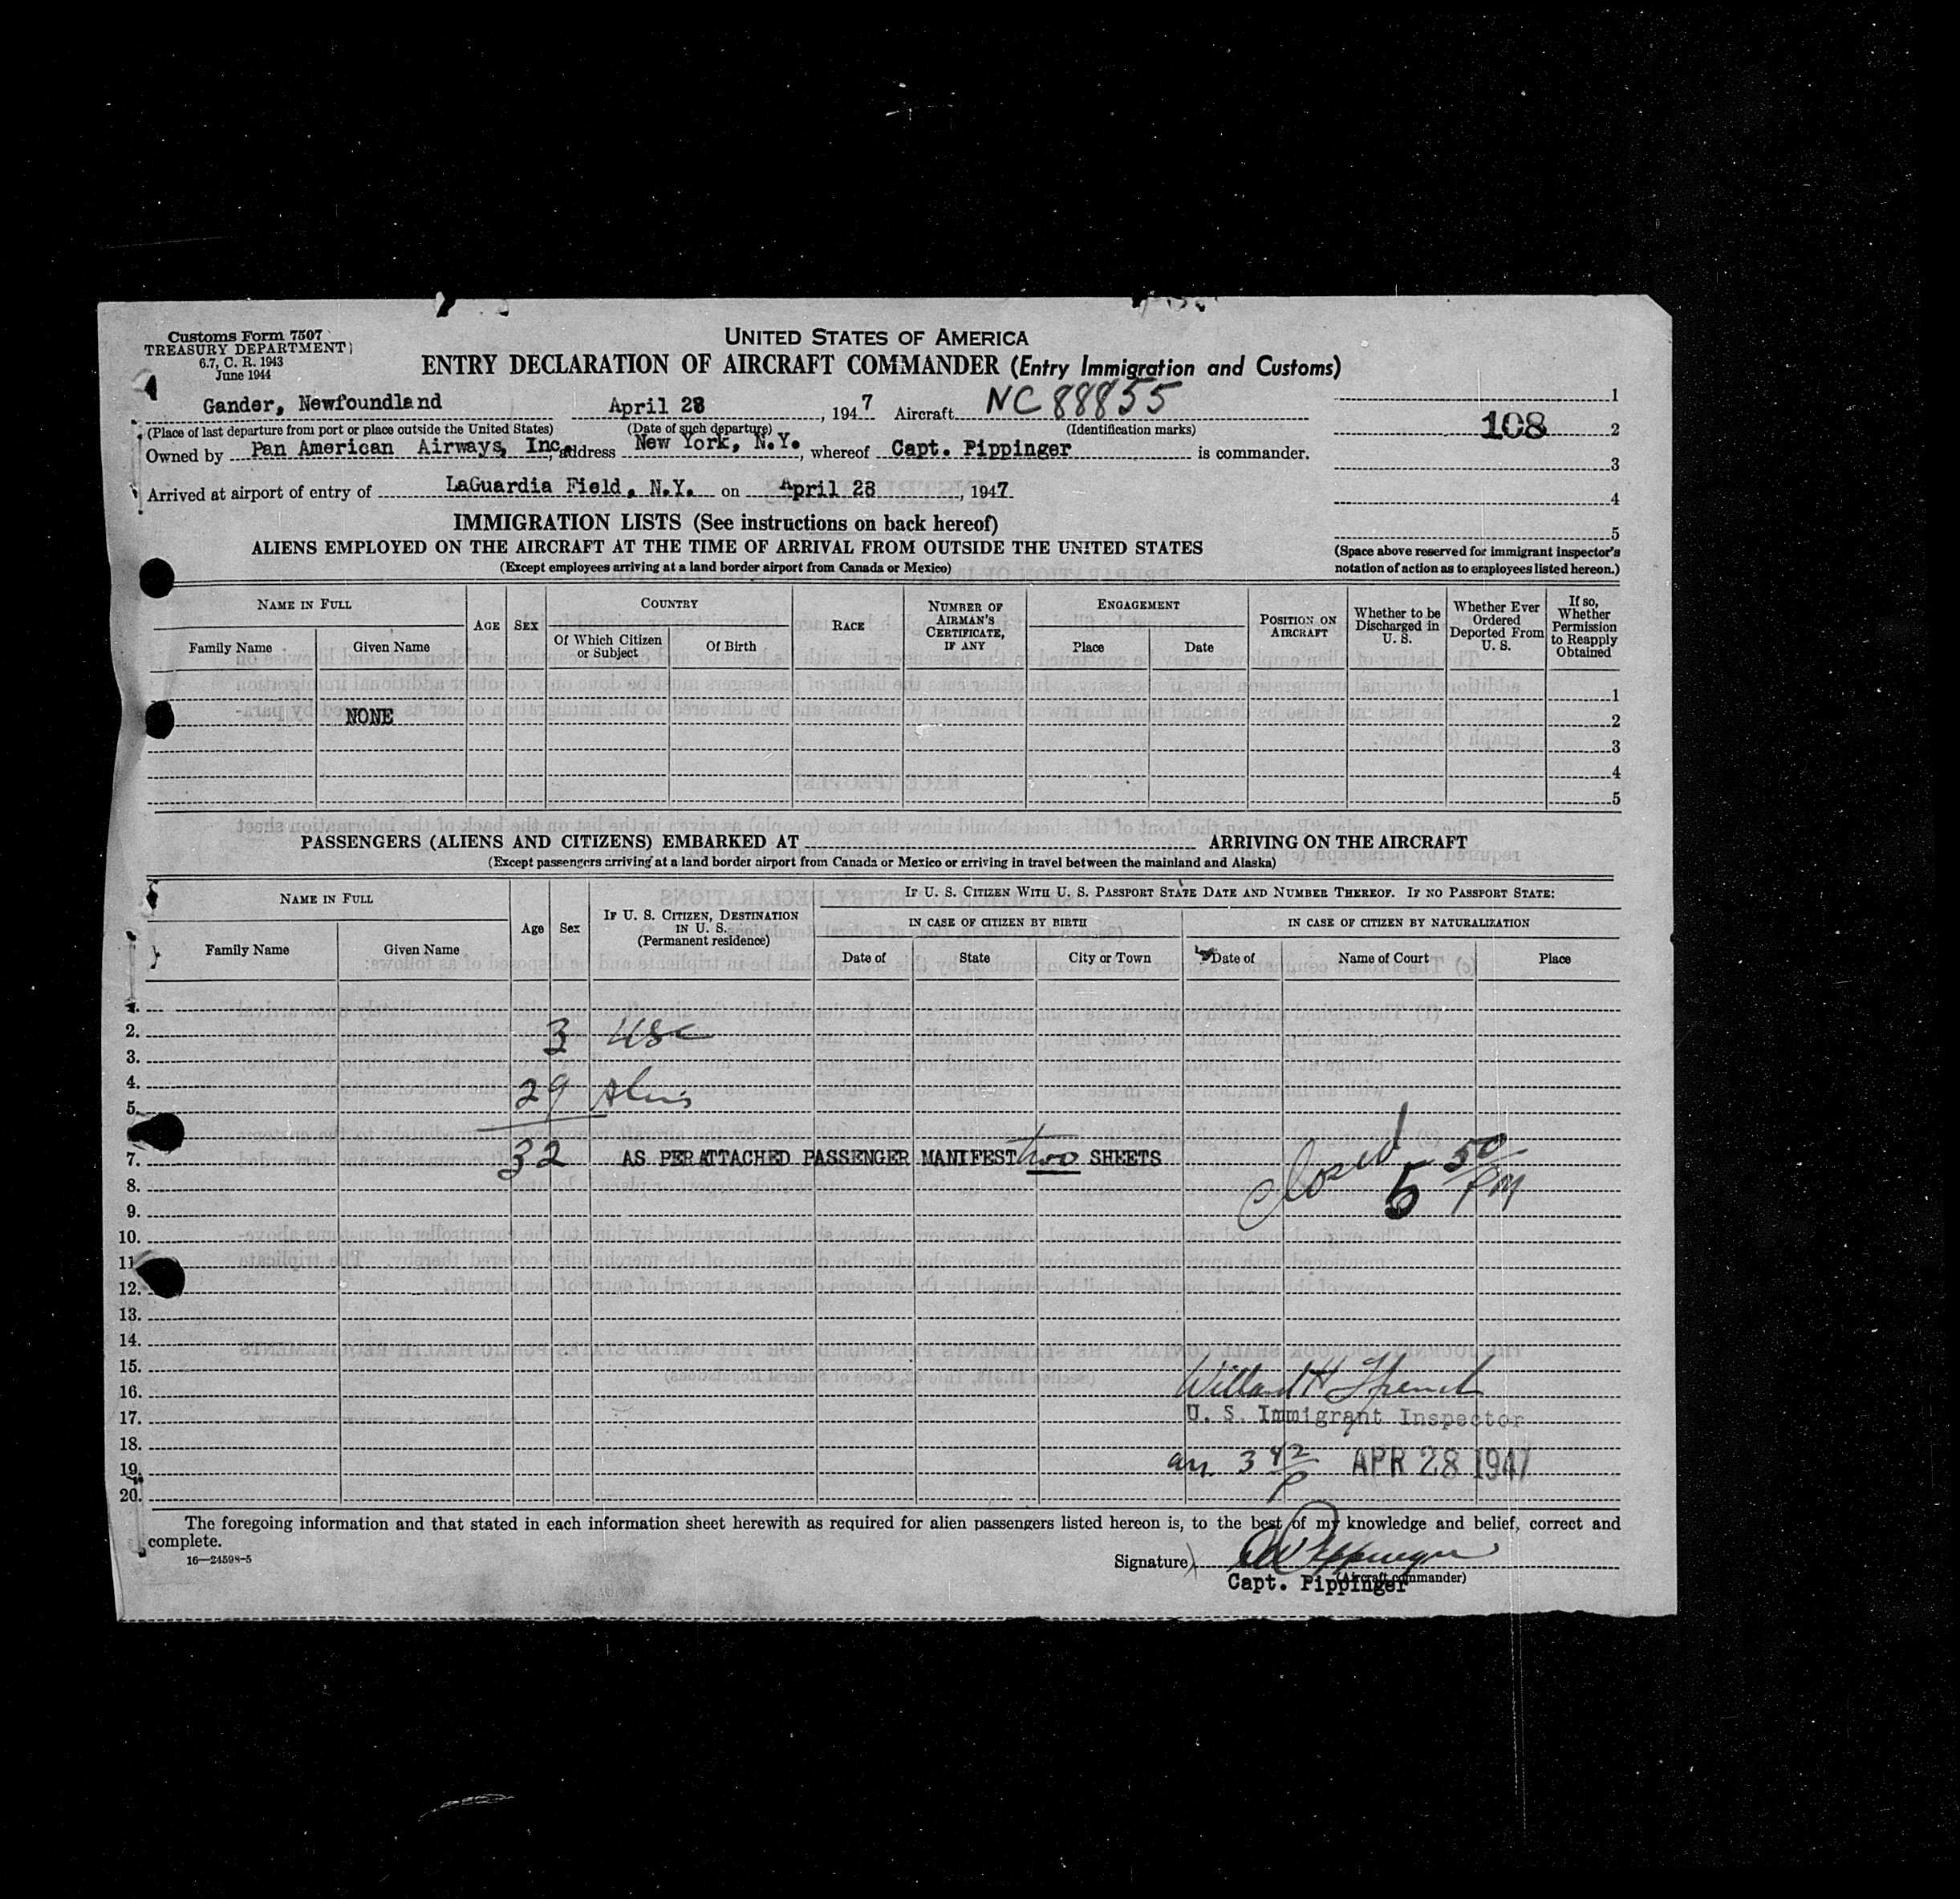 Customs Form 7507
TREASURY DEPARTMENT
6.7, C. R. 1943
June 1944
UNITED STATES OF AMERICA
ENTRY DECLARATION OF AIRCRAFT COMMANDER (Entry Immigration and Customs)
Gander, Newfoundland April 28, 1947 Aircraft NC 88855
(Place of last departure from port or place outside the United States) (Date of such departure) (Identification marks)
Owned by Pan American Airways, Inc., address New York, N.Y., whereof Capt. Pippinger is commander.
Arrived at airport of entry of LaGuardia Field, N.Y. on April 28, 1947
1
108 2
3
4
5
(Space above reserved for immigrant inspector's
notation of action as to employees listed hereon.)
IMMIGRATION LISTS (See instructions on back hereof)
ALIENS EMPLOYED ON THE AIRCRAFT AT THE TIME OF ARRIVAL FROM OUTSIDE THE UNITED STATES
(Except employees arriving at a land border airport from Canada or Mexico)
NAME IN FULL
Family Name
Given Name
AGE
SEX
COUNTRY
Of Which Citizen or Subject
Of Birth
RACE
NUMBER OF AIRMAN'S CERTIFICATE, IF ANY
ENGAGEMENT
Place
Date
POSITION ON AIRCRAFT
Whether to be Discharged in U. S.
Whether Ever Ordered Deported From U. S.
If so, Whether Permission to Reapply Obtained
1
NONE 2
3
4
5
PASSENGERS (ALIENS AND CITIZENS) EMBARKED AT ARRIVING ON THE AIRCRAFT
(Except passengers arriving at a land border airport from Canada or Mexico or arriving in travel between the mainland and Alaska)
NAME IN FULL
Family Name
Given Name
Age
Sex
IF U. S. CITIZEN, DESTINATION IN U. S.
(Permanent residence)
IF U. S. CITIZEN WITH U. S. PASSPORT STATE DATE AND NUMBER THEREOF. IF NO PASSPORT STATE:
IN CASE OF CITIZEN BY BIRTH
Date of
State
City or Town
IN CASE OF CITIZEN BY NATURALIZATION
Date of
Name of Court
Place
1.
2. 3 USC
3.
4. 29 Aliens
5.
7. 32 AS PER ATTACHED PASSENGER MANIFEST two SHEETS Closed 5 50/PM
8.
9.
10.
11
12.
13.
14.
15.
16. Willard H French
17. U. S. Immigrant Inspector
18.
19. arr. 3 42/P APR 28 1947
20.
The foregoing information and that stated in each information sheet herewith as required for alien passengers listed hereon is, to the best of my knowledge and belief, correct and
complete.
16—24598-5
Signature Pippinger
(Aircraft commander)
Capt. Pippinger